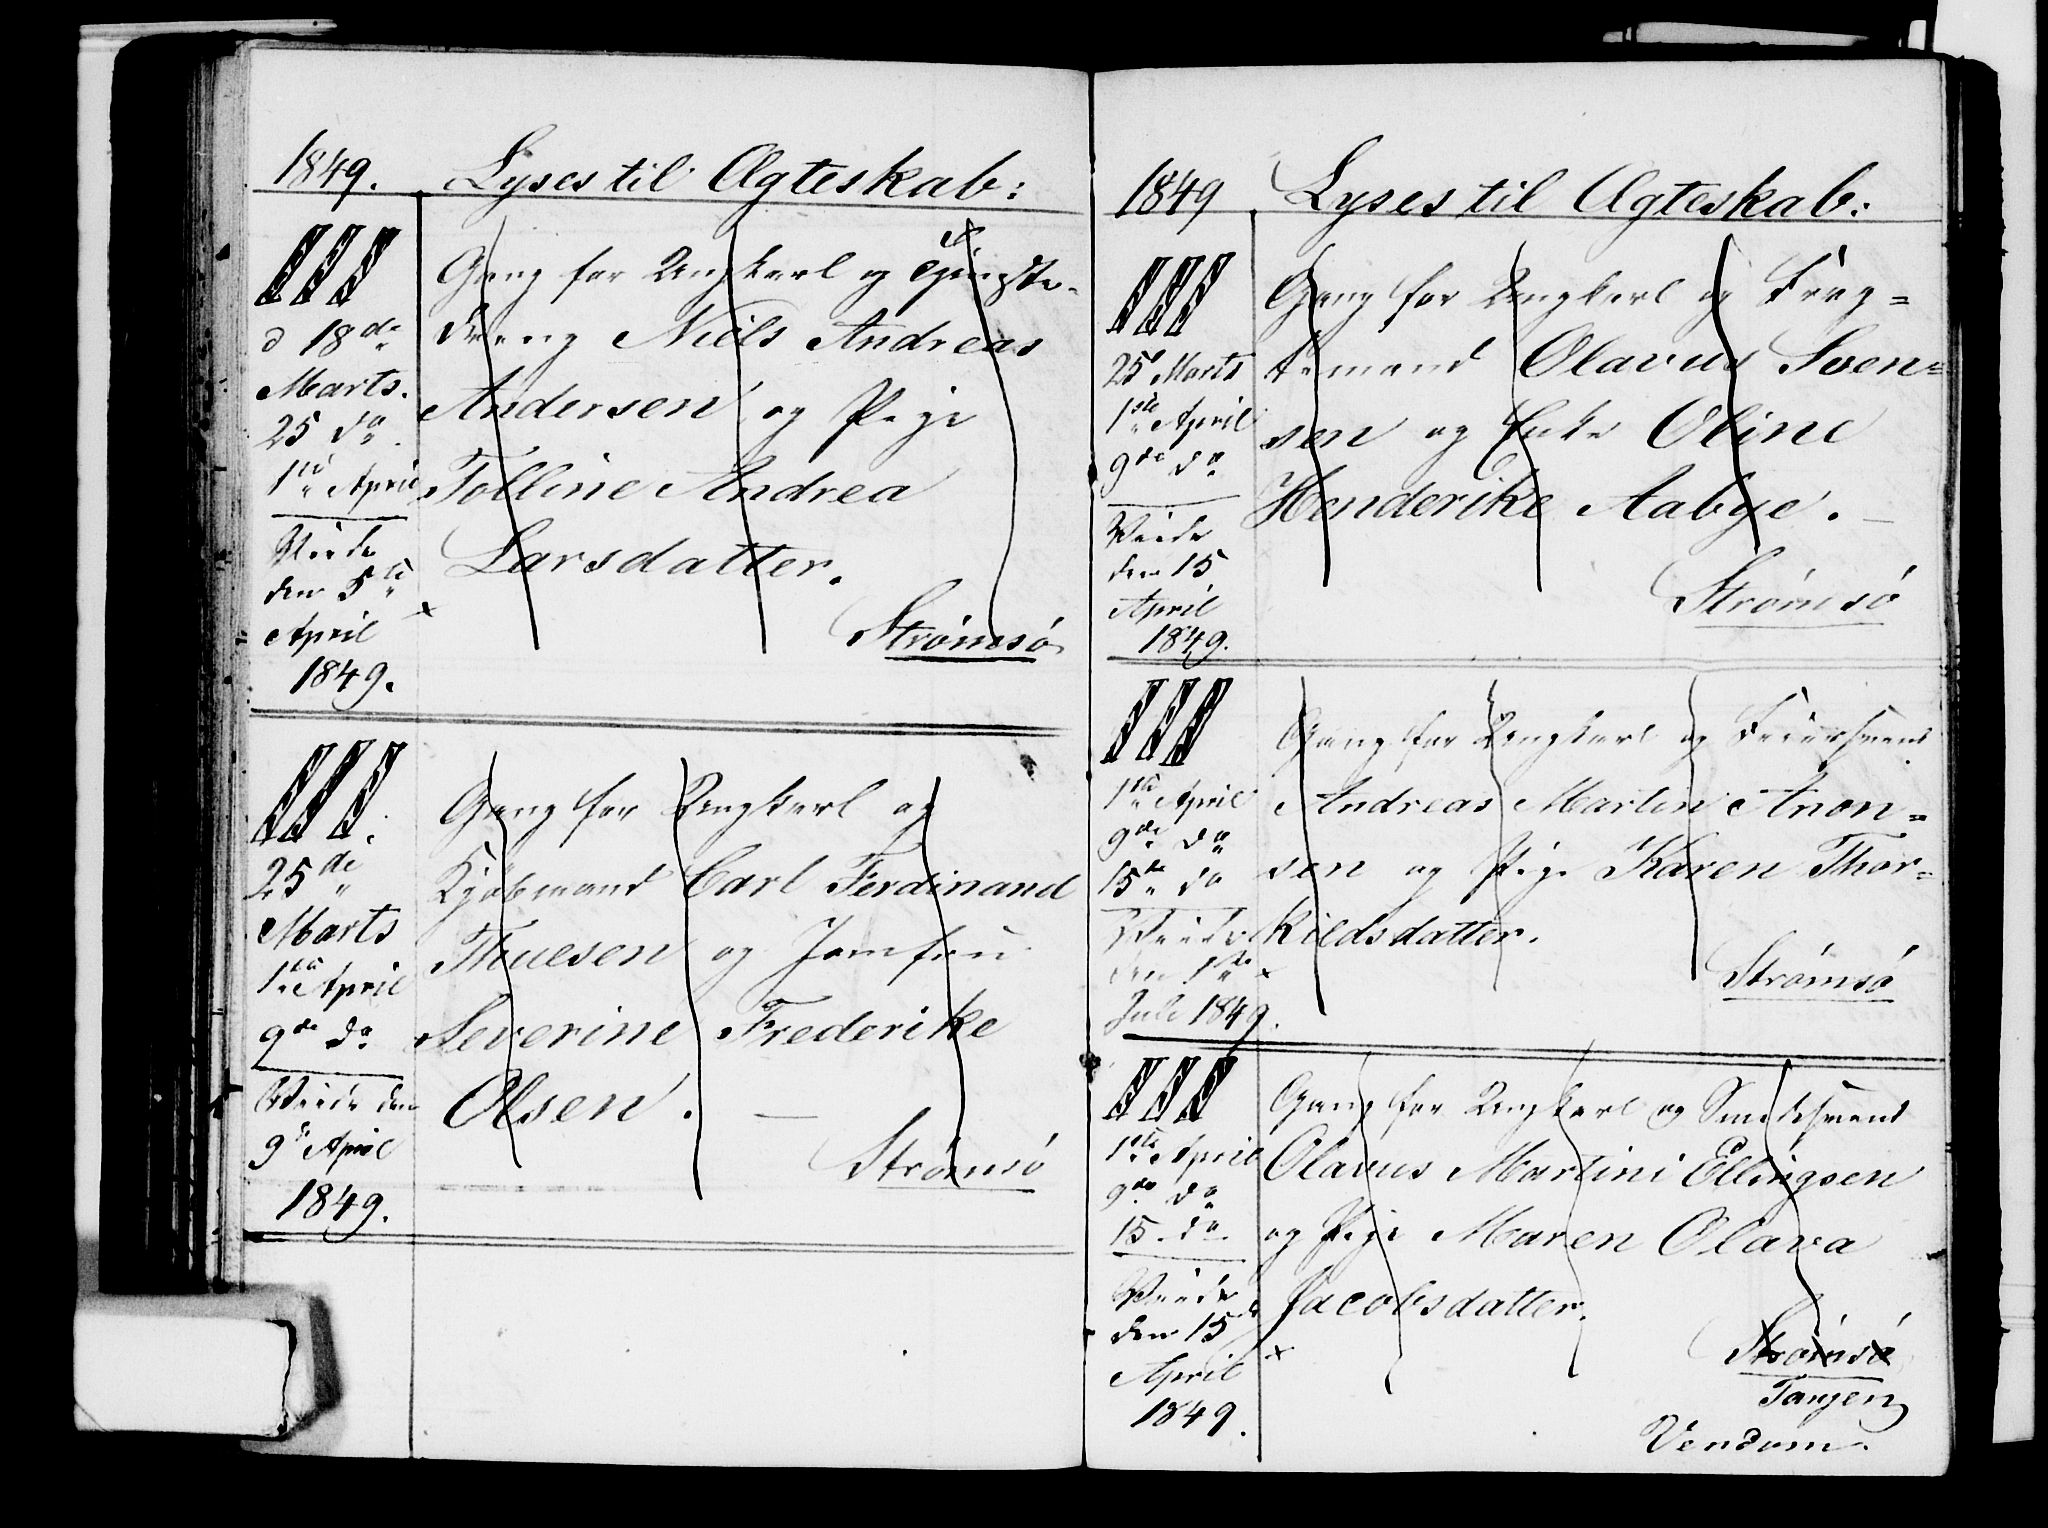 1849. Lyses til Ægteskab:
III
d 18de
Marts.
25 do
1ste April
Viede
den 5te
April
1849.
Gang for Ungkarl og Tjeneste-
dreng Niels Andreas
Andersen og Pige
Tolline Andrea
Larsdatter.
Strømsö
III.
25de
Marts
1ste April
9de do
Viede den
9de April
1849.
Gang for Ungkarl og
Kjøbmand Carl Ferdinand
Thuesen og Jomfru
Severine Frederike
Olsen. —
Strømsö
1849 Lyses til Ægteskab:
III
25 Marts
1ste April
9de do
Viede
den 15
April
1849.
Gang for Ungkarl og Frag=
temand Olavus Sven=
sen og Enke Oline
Henderike Aabye. —
Strømsö
III
1ste April
9de do
15de do
Viede
den 1ste
Juli 1849.
Gang for Ungkarl og Feiersvend
Andreas Martin Anon=
sen og Pige Karen Thor=
kildsdatter.
Strömsö
III
1ste April
9de do
15. do.
Viede
den 15de
April
1849.
Gang for Ungkarl og Smedesvend
Olavus Martini Ellingsen
og Pige Maren Olava
Jacobsdatter.
Strömsö
Tangen